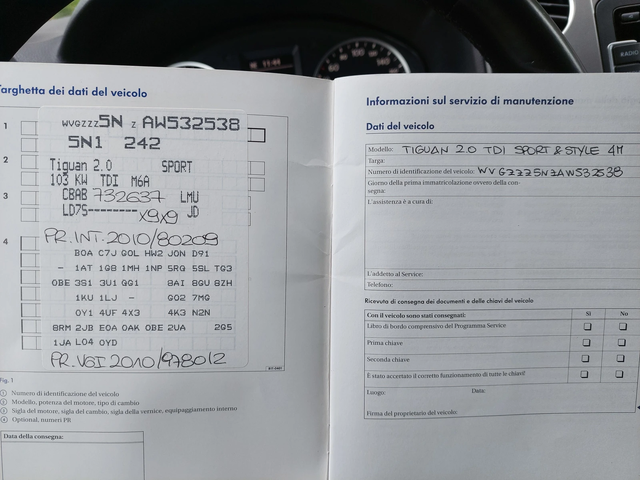 Targhetta dei dati del veicolo
1
WVGZZZ5N Z AW532538
5N1 242
2
Tiguan 2.0 SPORT
103 KW TDI M6A
3
CBAB 732637 LMU
LD7S-------- X9X9 JD
4
PR.INT.2010/80209
BOA C7J GOL HW2 JON D91
- 1AT 1GB 1MH 1NP 5RQ 5SL TG3
OBE 3S1 3U1 GG1 8AI 8GU 8ZH
1KU 1LJ - GO2 7MG
OY1 4UF 4X3 4K3 N2N
8RM 2JB EOA OAK OBE 2UA 2G5
1JA LO4 OYD
PR.VGI 2010/978012
Fig. 1
1 Numero di identificazione del veicolo
2 Modello, potenza del motore, tipo di cambio
3 Sigla del motore, sigla del cambio, sigla della vernice, equipaggiamento interno
4 Optional, numeri PR
Data della consegna:
Informazioni sul servizio di manutenzione
Dati del veicolo
Modello: TIGUAN 2.0 TDI SPORT & STYLE 4M
Targa:
Numero di identificazione del veicolo: WVGZZZ5NZAW532538
Giorno della prima immatricolazione ovvero della con-
segna:
L'assistenza è a cura di:
L'addetto al Service:
Telefono:
Ricevuta di consegna dei documenti e delle chiavi del veicolo
Con il veicolo sono stati consegnati: Sì No
Libro di bordo comprensivo del Programma Service
Prima chiave
Seconda chiave
È stato accertato il corretto funzionamento di tutte le chiavi?
Luogo: Data:
Firma del proprietario del veicolo:
RADIO